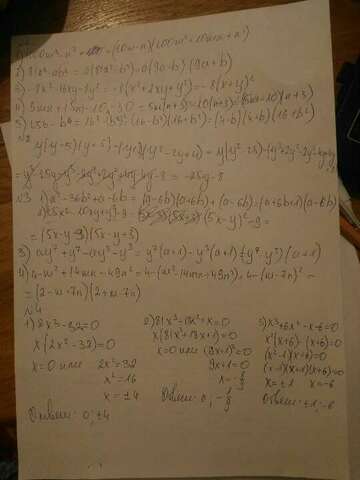 2) 81a³-ab²=a(81a²-b²)=a(9a-b)(9a+b)
3) -8x²-16xy-8y²=-8(x²+2xy+y²)=-8(x+y)²
4) 5mn+15m-10n-30=5m(n+3)-10(n+3)=(5m-10)(n+3)
5) 256-b⁴=(16-b²)(16+b²)=(4-b)(4+b)(16+b²)
№2
№3 1) a²-36b²+a-6b=(a-6b)(a+6b)+(a-6b)=(a+6b+1)(a-6b)
(5x-y)²-9=
=(5x-y-3)(5x-y+3)
3) ay⁷+y⁷-ay³-y³=y⁷(a+1)-y³(a+1)=(y⁷-y³)(a+1)
4) 4-m²+14mn-49n²=4-(m²-14mn+49n²)=4-(m-7n)²=
=(2-m+7n)(2+m-7n)
№4
1) 2x³-32x=0
x(2x²-32)=0
x=0 или 2x²=32
x²=16
x=±4
Ответ: 0; ±4
2) 81x³+18x²+x=0
x(81x²+18x+1)=0
x=0 или (9x+1)²=0
9x+1=0
x=-1/9
Ответ: 0; -1/9
3) x³+6x²-x-6=0
x²(x+6)-(x+6)=0
(x²-1)(x+6)=0
(x-1)(x+1)(x+6)=0
x=±1 x=-6
Ответ: ±1; -6